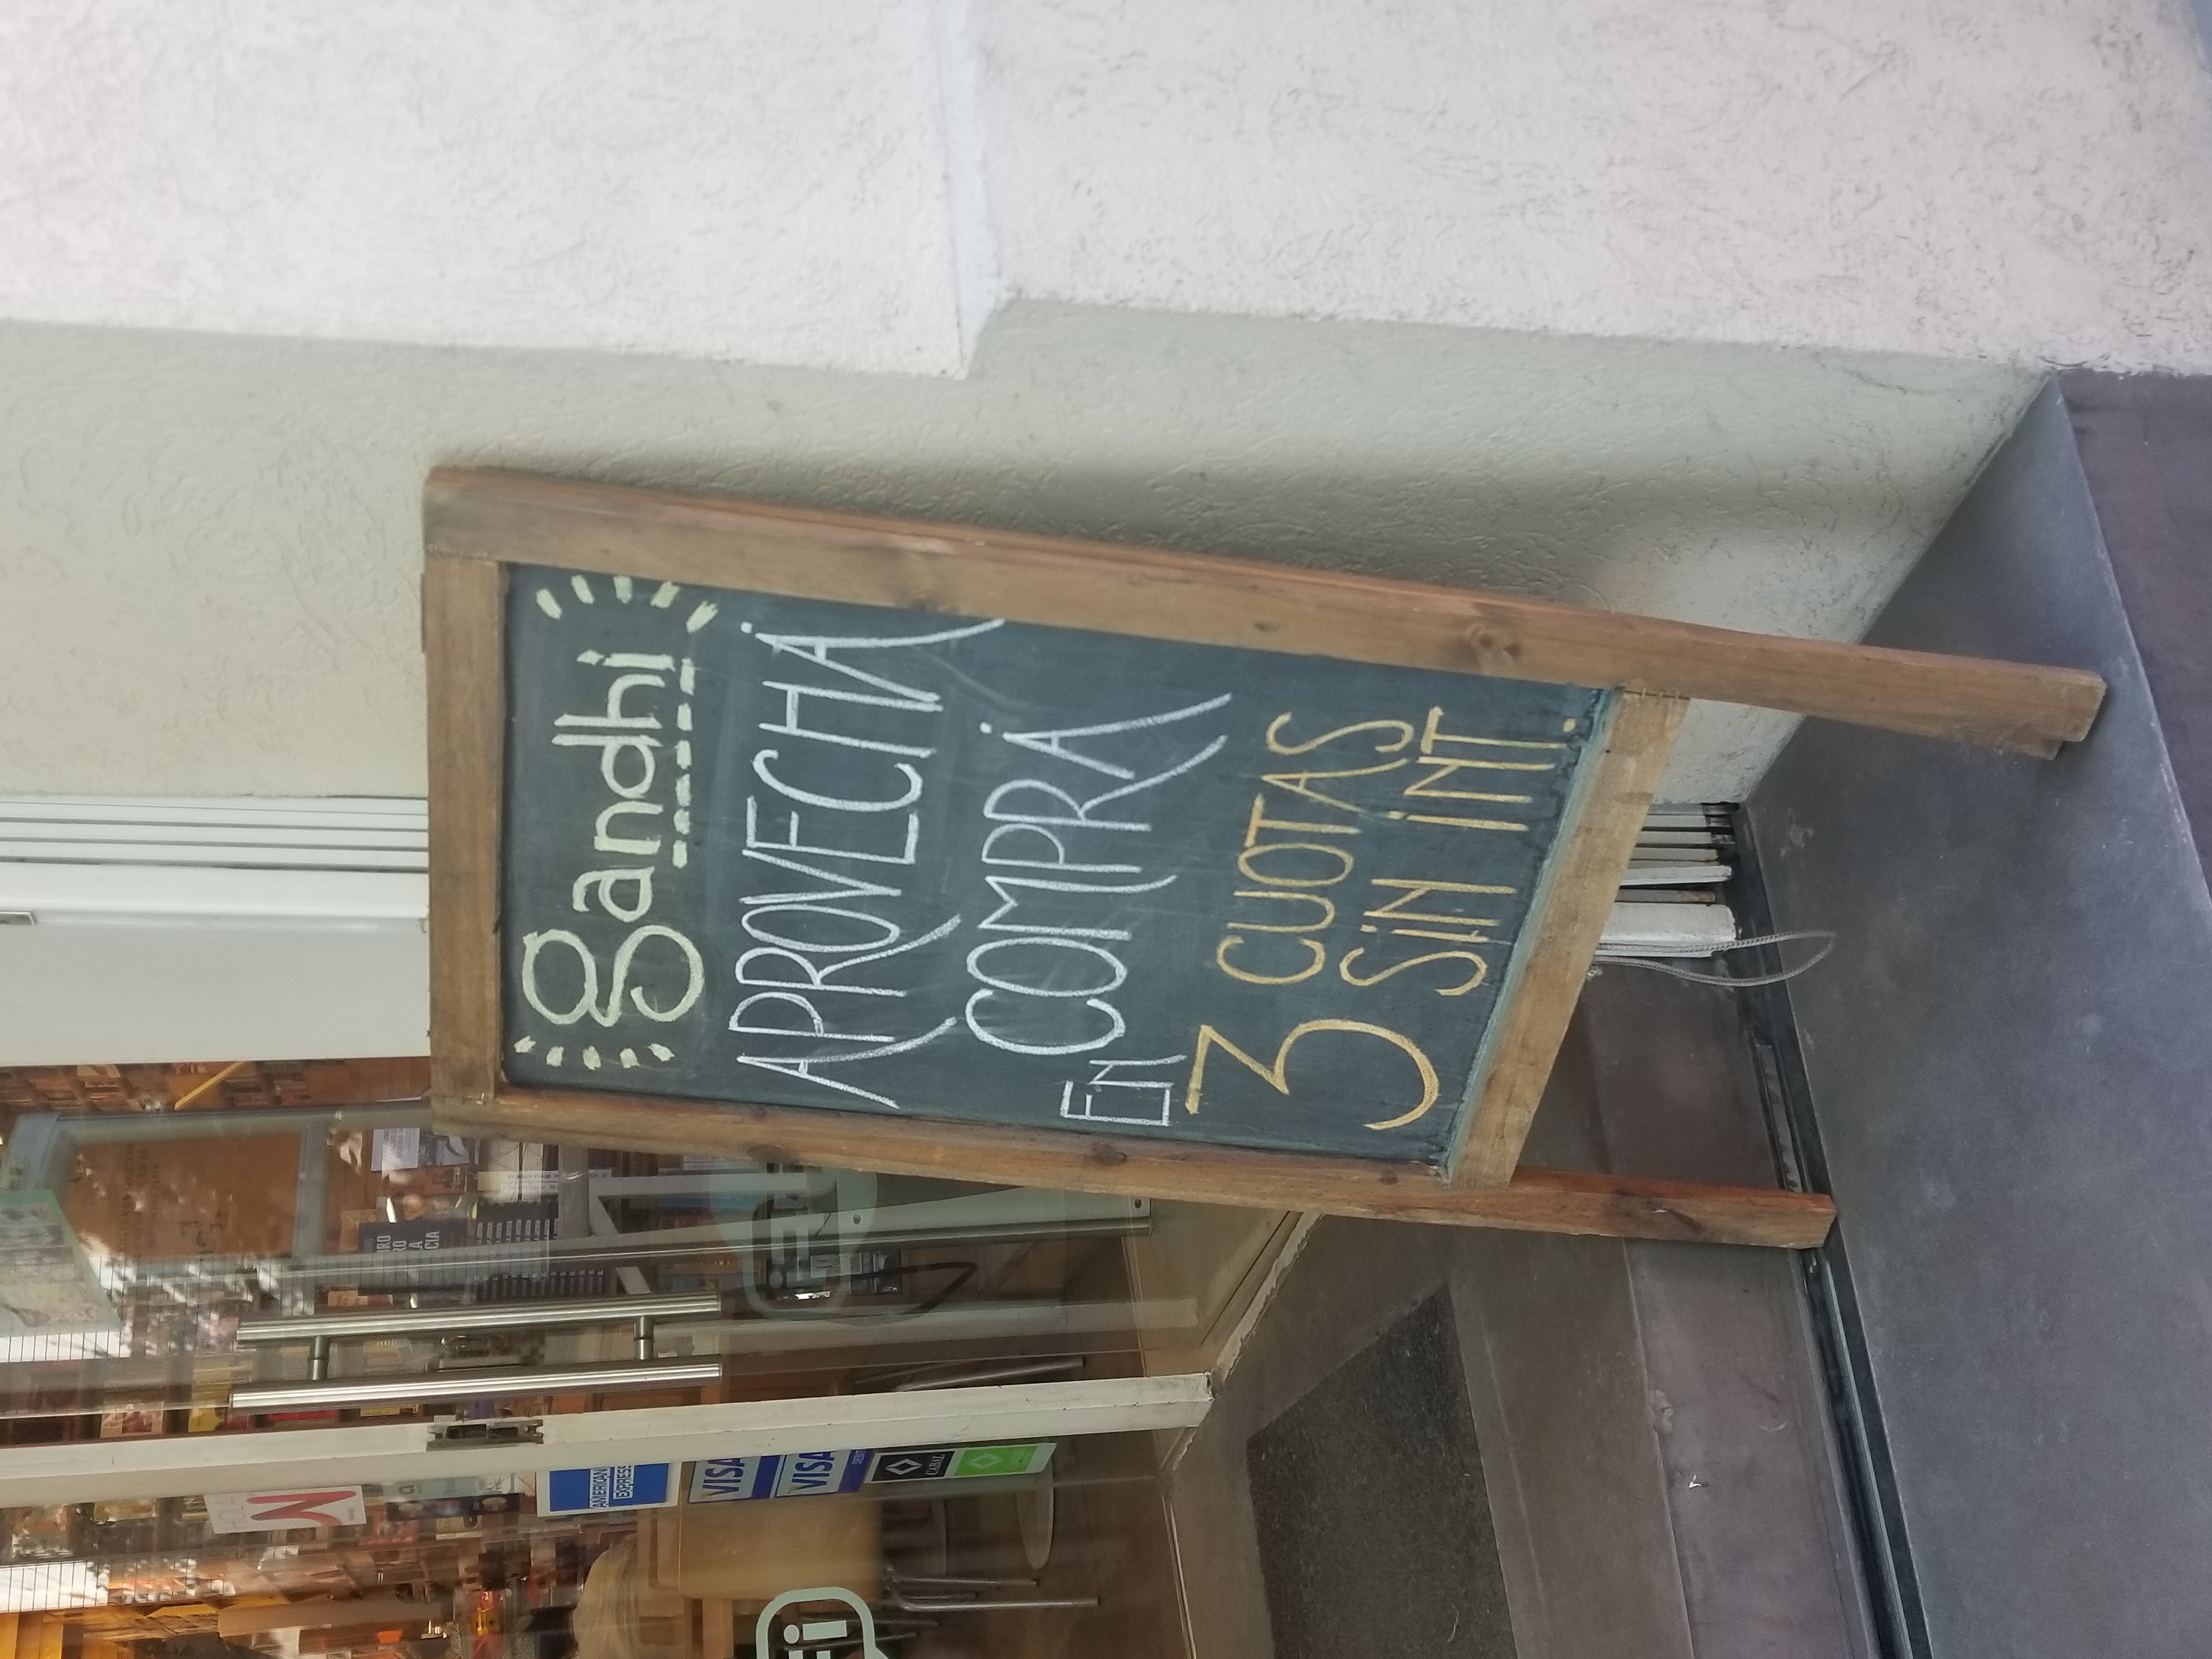 gandhi
APROVECHÁ
COMPRÁ
En
3 CUOTAS
SiN iNT.
AMERICAN
EXPRESS
VISA
VISA
DEBIT
CABAL